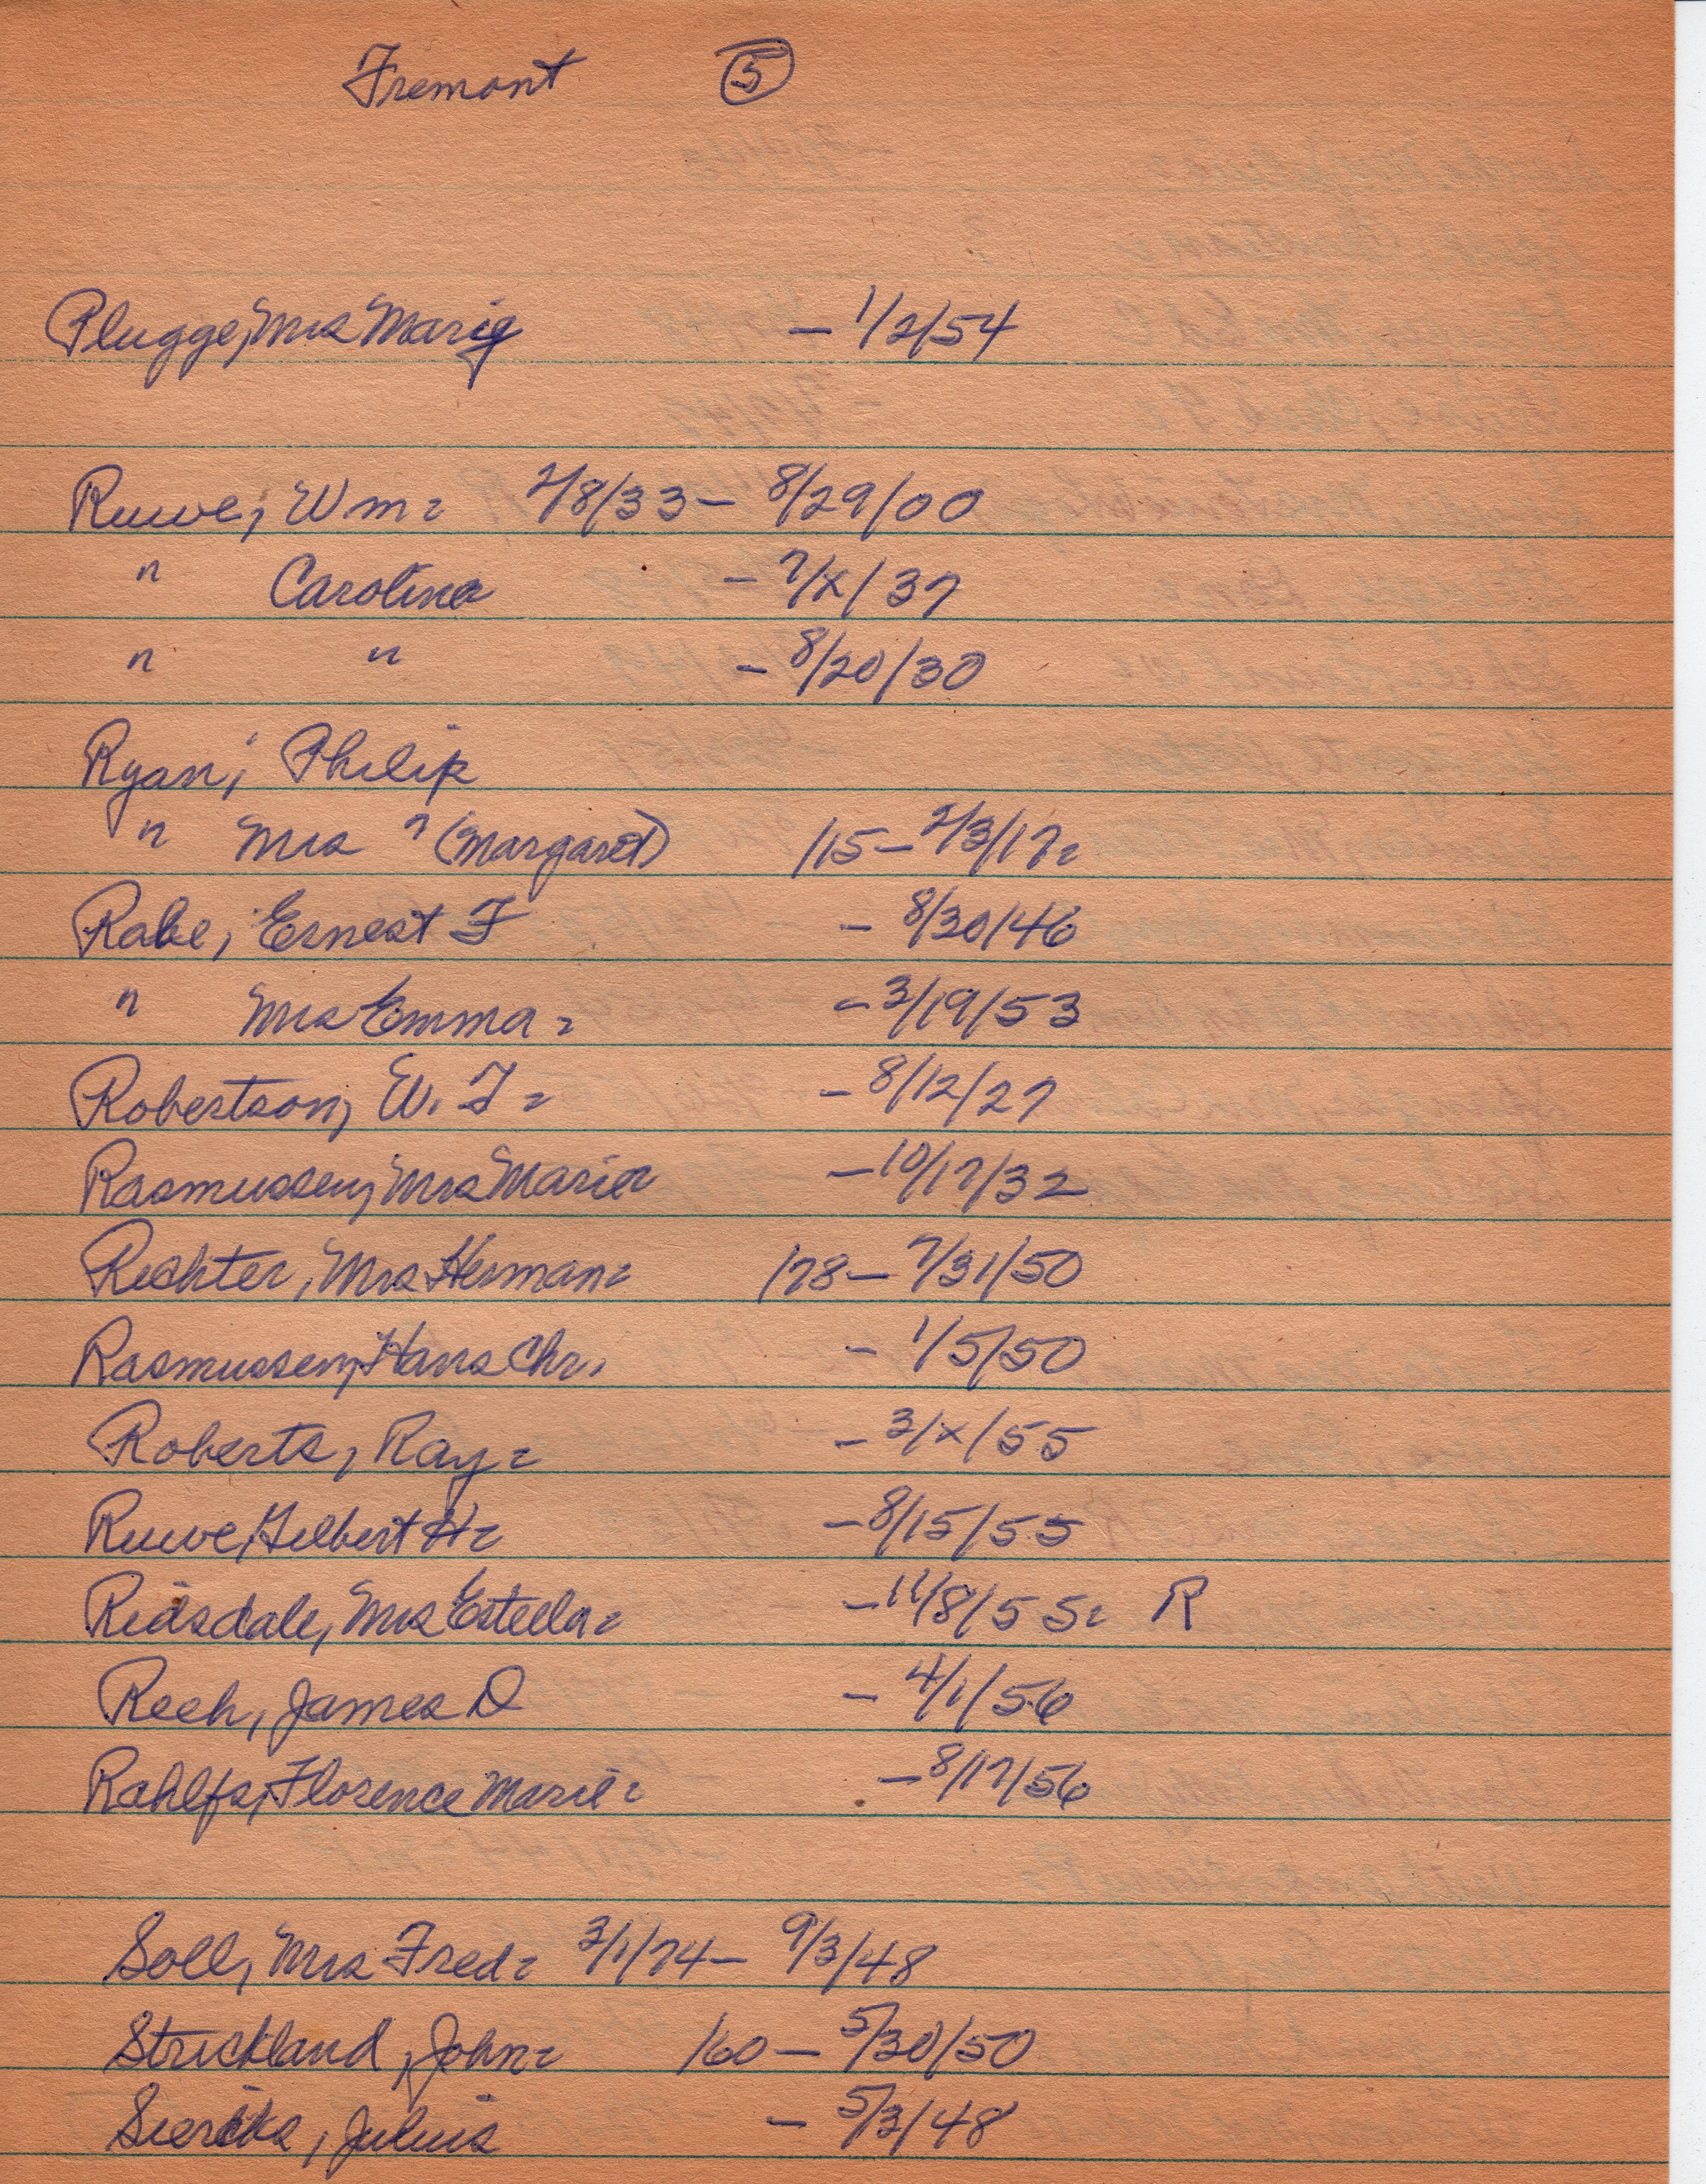 Fremont 5
Plugge, Mrs Marie - 1/2/54
Ruwe, Wm= 2/8/33 - 8/29/00
" Caroline - 7/x/37
" " - 8/20/30
Ryan, Philip
" Mrs " (Margaret) /15 - 2/3/17=
Rabe, Ernest F - 8/30/46
" Mrs Emma= - 3/19/53
Robertson, W. F= - 8/12/27
Rasmussen, Mrs Marie - 10/17/32
Richter, Mrs Herman= /78 - 7/31/50
Rasmussen, Hans Chr. - 1/5/50
Roberts, Ray= - 3/x/55
Ruwe, Gilbert H= - 8/15/55
Ridsdale, Mrs Estella= - 11/8/55= R
Reeh, James D - 4/1/56
Rahlfs, Florence Marie= - 8/17/56
Soll, Mrs Fred= 3/1/74 - 9/3/48
Strickland, John= /60 - 5/30/50
Julius - 5/3/48